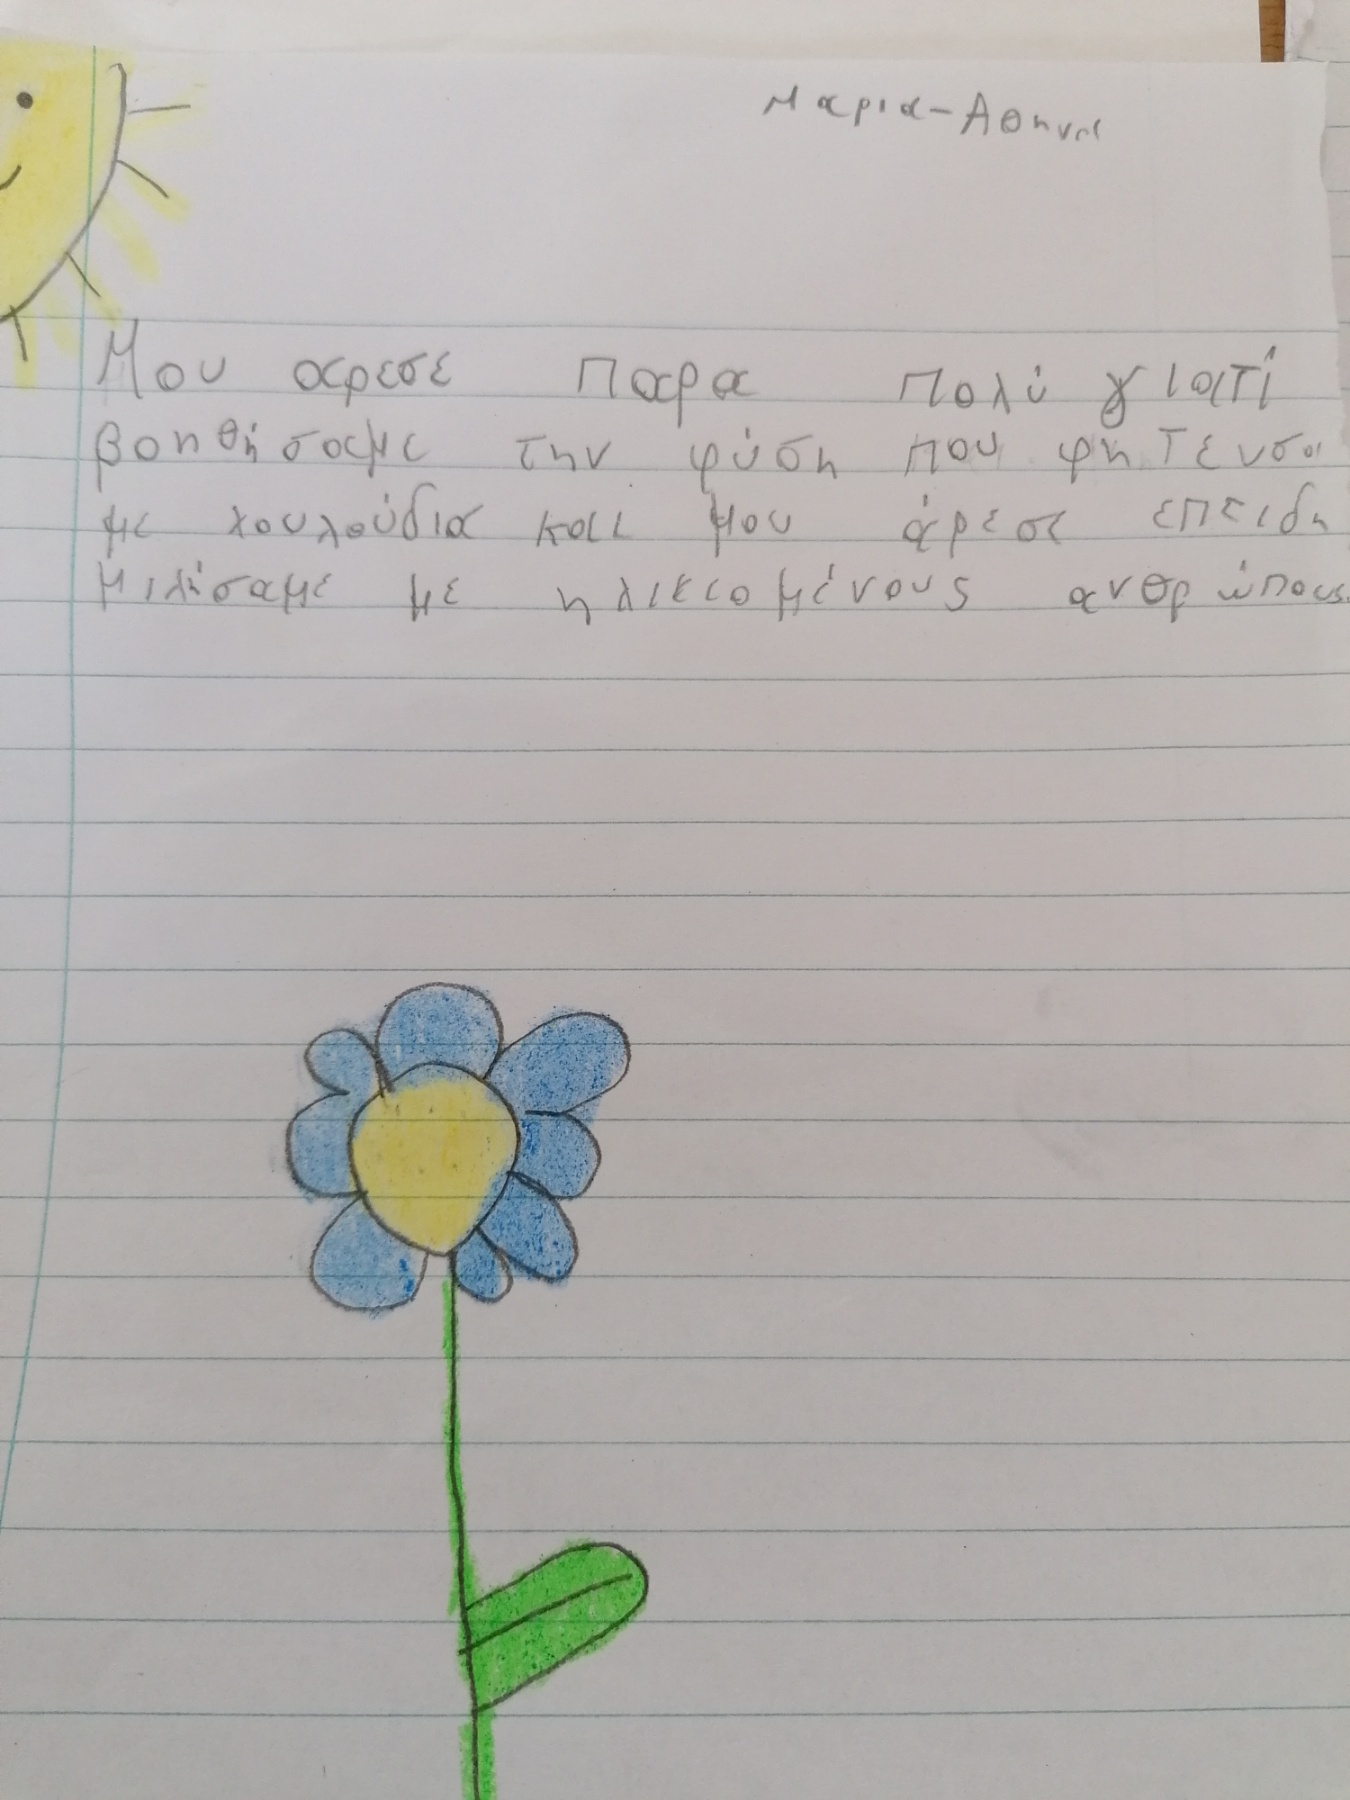 Μαρια-Αθηνα
Μου αρεσε παρα πολύ γιατί
βοηθήσαμε την φύση που φητευσα
με λουλούδια και μου άρεσε επειδη
μιλήσαμε με ηλικιομένους ανθρώπους.